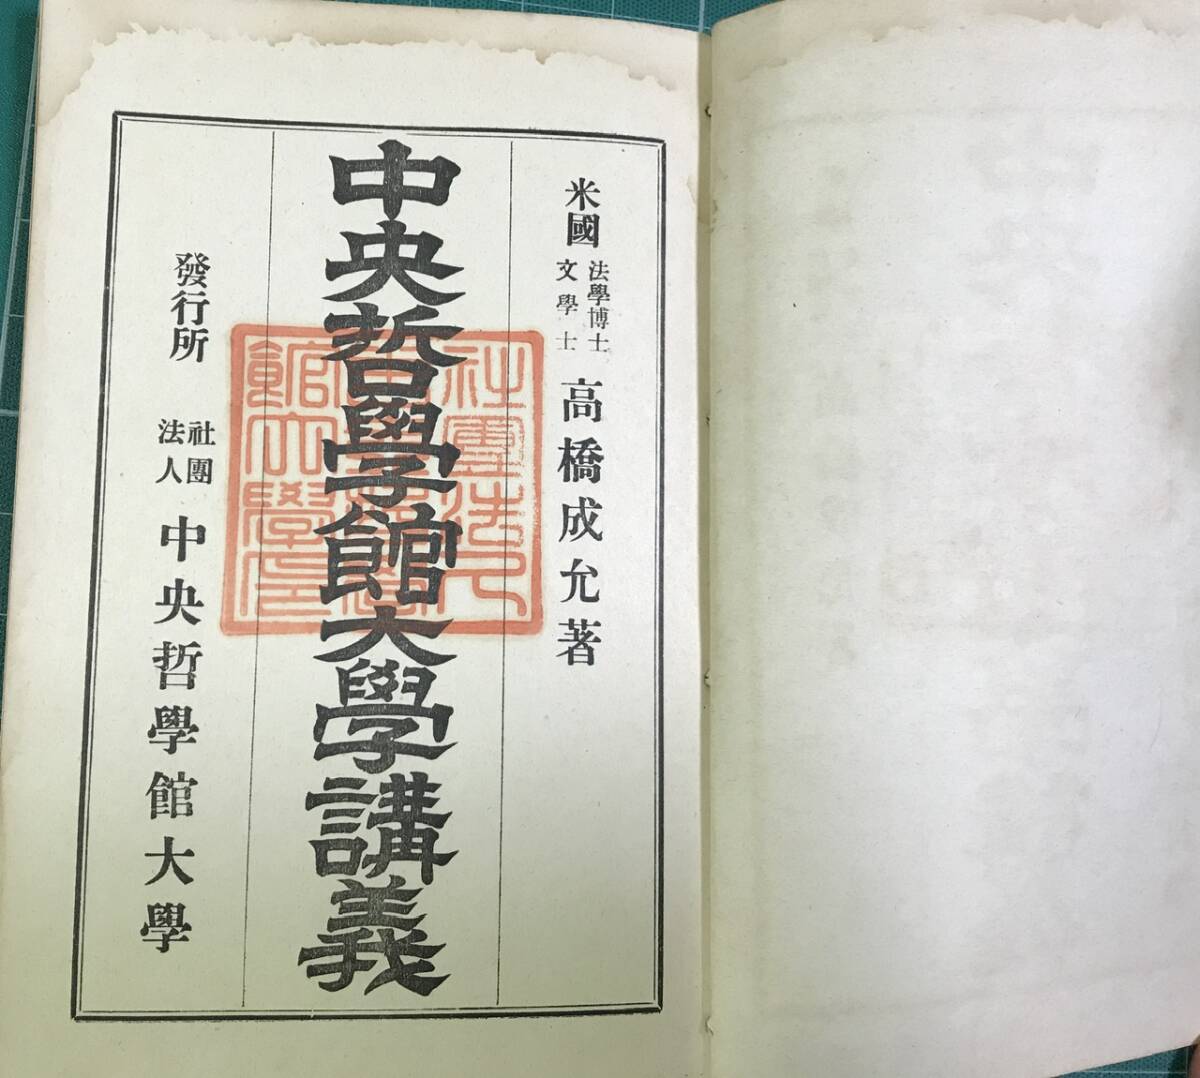 米國 法學博士 文學士 高橋成允著
中央哲學館大學講義
發行所 社團法人 中央哲學館大學
社團法人
館大學印